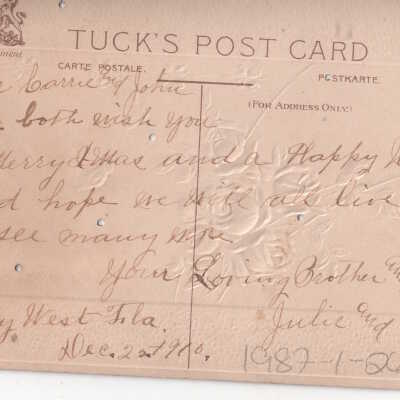 TUCK'S POST CARD
CARTE POSTALE.
POSTKARTE.
(FOR ADDRESS ONLY.)
Carrie & John
both wish you
Merry Xmas and a Happy
hope we will all live
see many more
Your Loving Brother and
West Fla. Julie and
Dec. 22 1910.
1987-1-